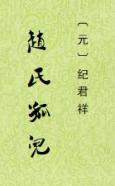 〔元〕紀君祥
趙氏孤兒